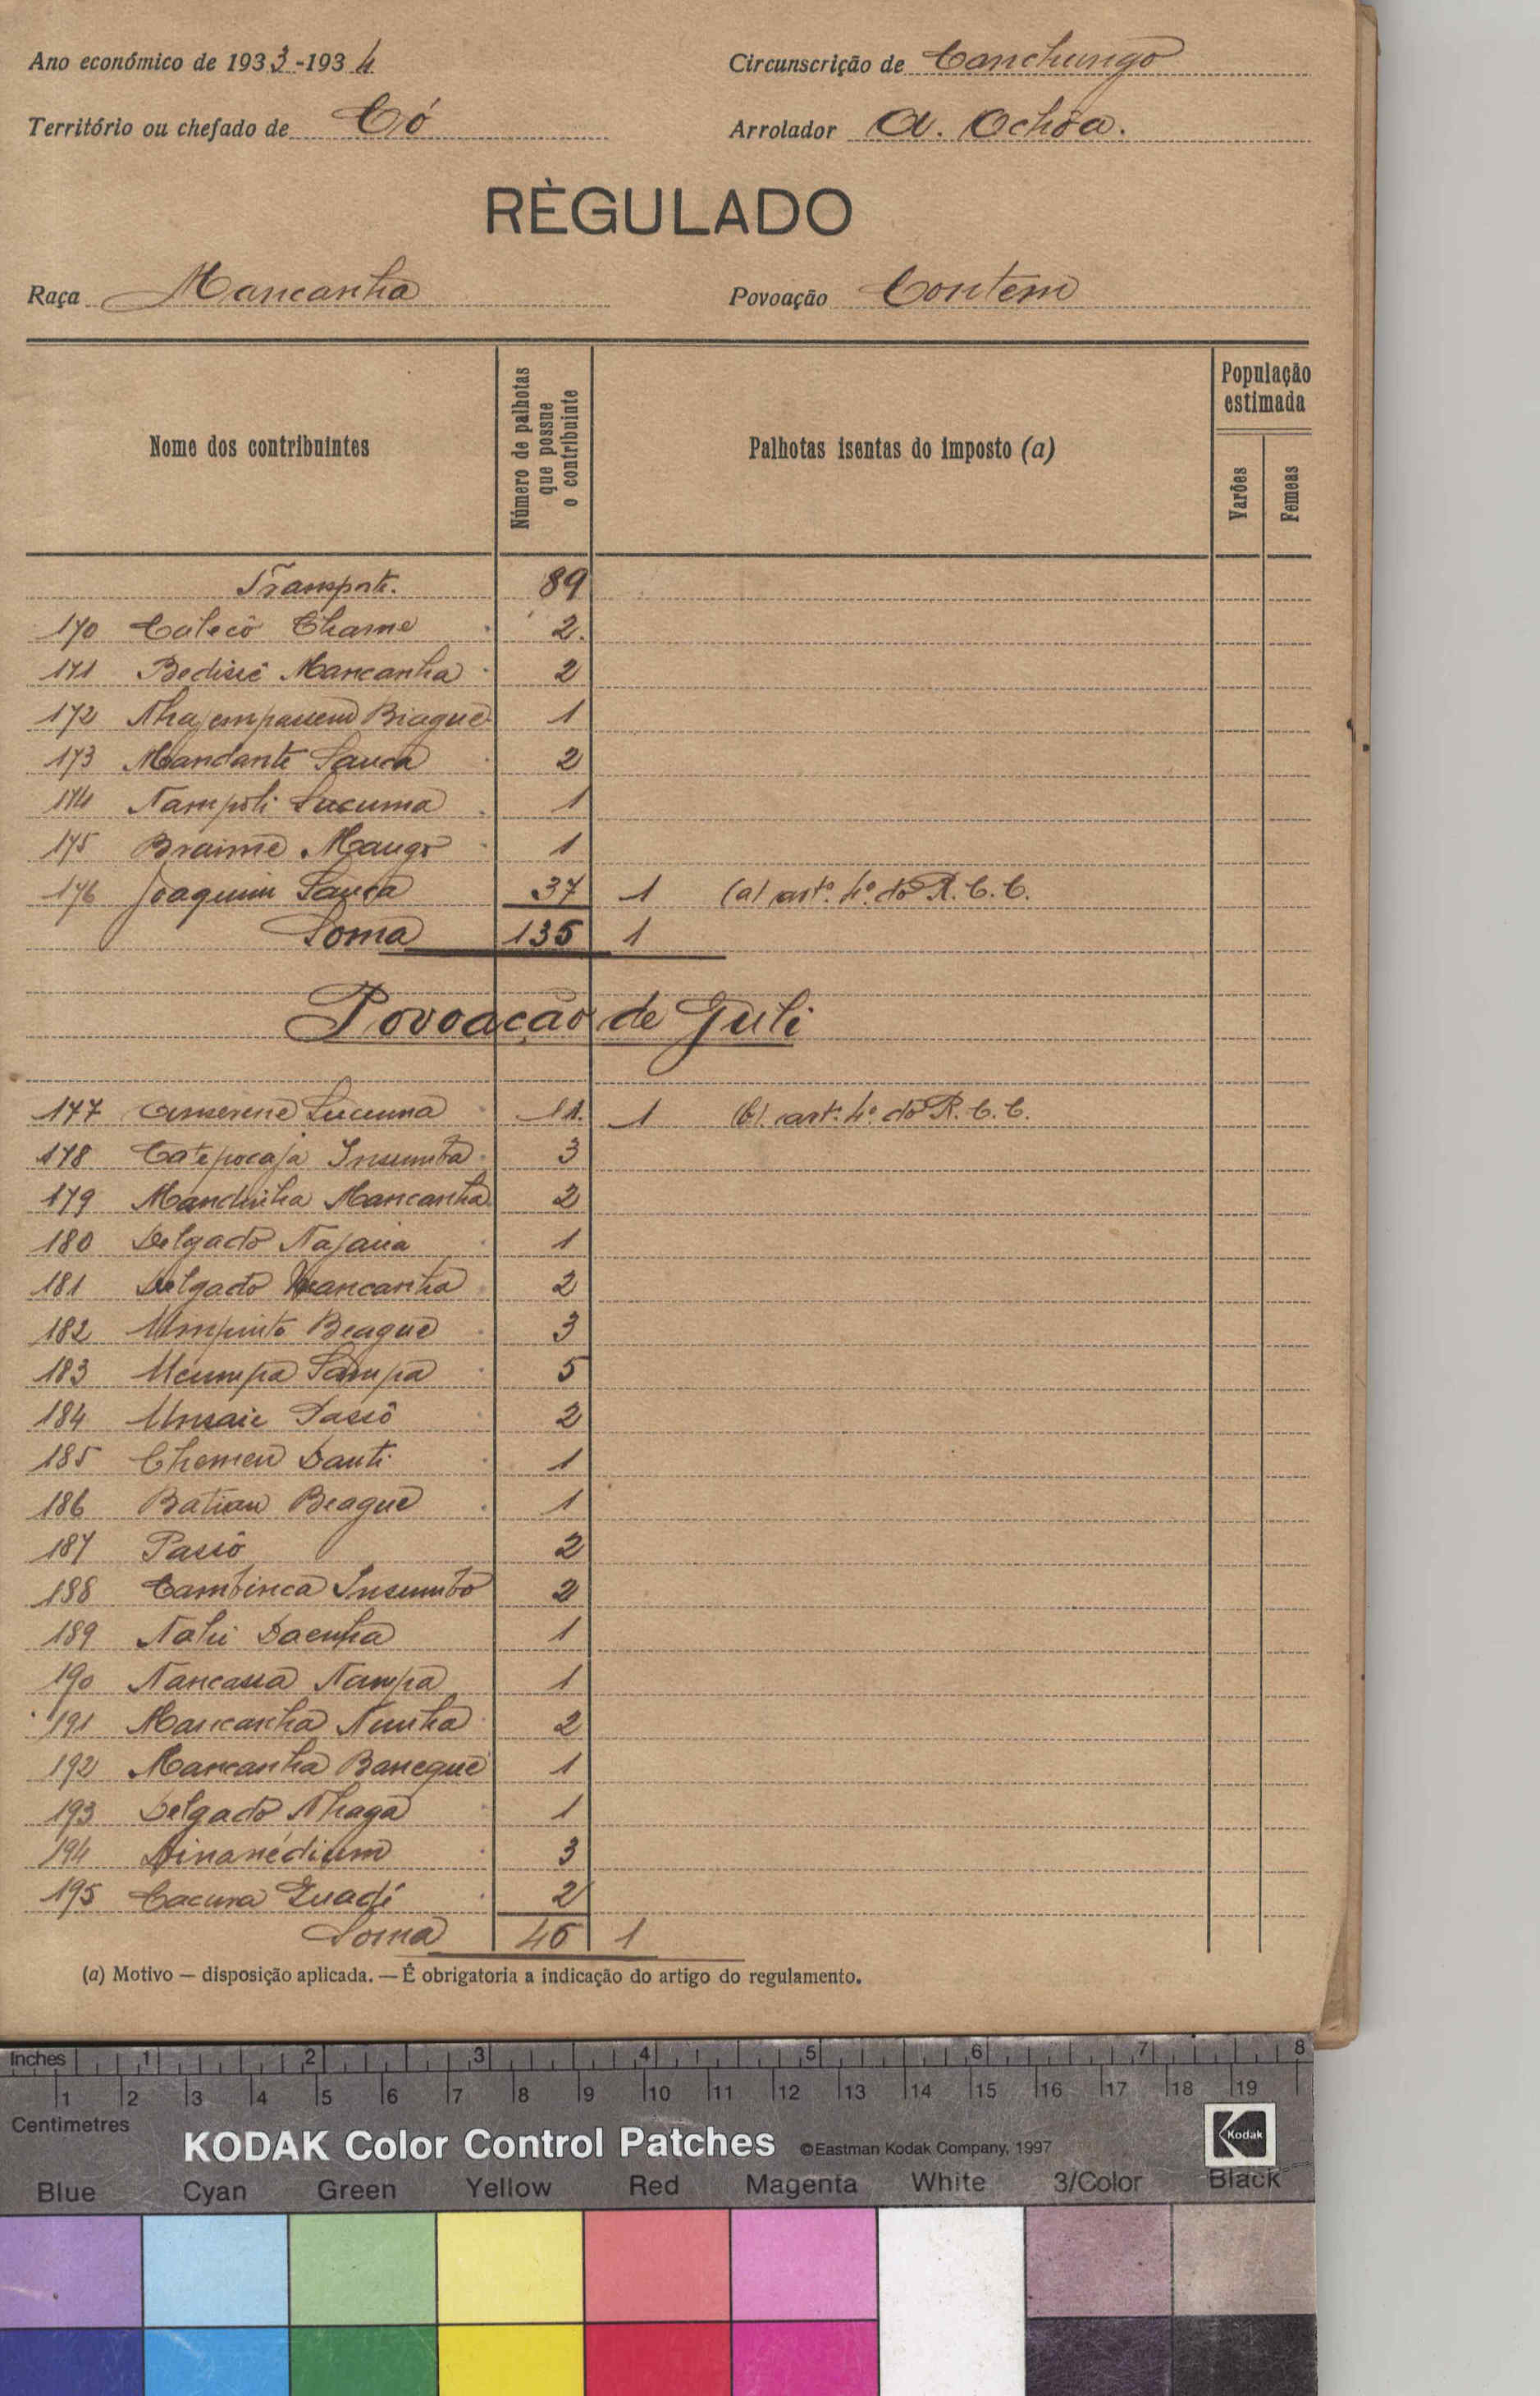 Ano económico de 1933-1934 Circunscrição de Canchungo
Território ou chefado de Có Arrolador A. Ochôa.
RÈGULADO
Raça Mancanha Povoação Contem
Nome dos contribuintes
Número de palhotas que possue o contribuinte
Palhotas isentas do imposto (a)
População estimada
Varões
Femeas
Transporte. 89
170 Catecô Chame 2
171 Bedisiê Mancanha 2
172 Biague 1
173 Mandante Sanca 2
174 Nampoli Lucuma 1
175 Braima Mango 1
176 Joaquim Sanca 37 1 (a) artº. 4º. do R. C. C.
Soma 135 1
Povoação de Juli
177 Lucuma 11 1 (b) artº. 4º. do R. C. C.
178 Catepocaja Insumba 3
179 Mandinha Mancanha 2
180 Delgado Najaua 1
181 Delgado Mancanha 2
182 Umpinto Beague 3
183 Ucumpa Sampa 5
184 Unsaie 2
185 Chemen Danti 1
186 Batian Beague 1
187 Passô 2
188 Cambinca Insumbo 2
189 1
190 Nancassa Nampa 1
191 Mancanha Nunha 2
192 Mancanha Banegue 1
193 Delgado Nhaga 1
194 3
195 Cacuma 2
Soma 46 1
(a) Motivo — disposição aplicada. — É obrigatoria a indicação do artigo do regulamento.
Inches 1 2 3 4 5 6 7 8
1 2 3 4 5 6 7 8 9 10 11 12 13 14 15 16 17 18 19
Centimetres
KODAK Color Control Patches ©Eastman Kodak Company, 1997 Kodak
Blue Cyan Green Yellow Red Magenta White 3/Color Black